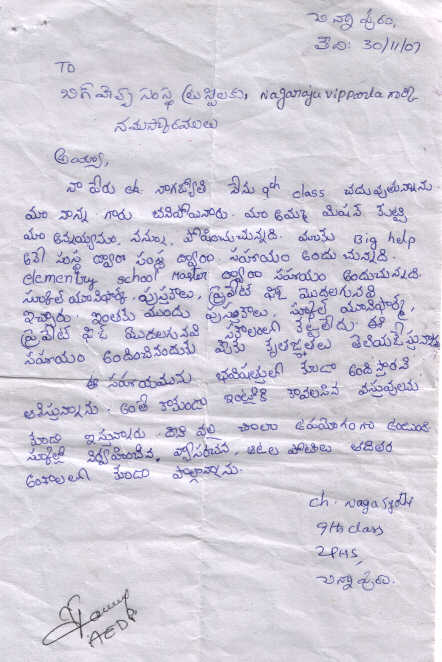 చిన్నాపురం,
తేది: 30/11/07
TO
బిగ్ హెల్ప్ సంస్థ ట్రస్టీలకు, Nagaraju vipparla గార్కి
నమస్కారములు
అయ్యా,
నా పేరు ch. నాగజ్యోతి నేను 9th class చదువుతున్నాను.
మా నాన్న గారు చనిపోయినారు. మా అమ్మ మిషన్ కుట్టి
మా అన్నయ్యను, నన్ను, పోషించుచున్నది. మాకు Big help
అనే సంస్థ ద్వారా సంస్థ ద్వారా సహాయం అందుచున్నది.
elementry school Master ద్వారా సహాయం అందుచున్నది.
స్కూల్ యూనిఫార్మ్, పుస్తకాలు, ప్రైవేట్ ఫీజు మొదలగునవి
ఇచ్చారు. ఇంతకు ముందు పుస్తకాలు, స్కూల్ యూనిఫార్మ్,
ప్రైవేట్ ఫీజు మొదలగునవి లేదు. ఈ
సహాయం అందించినందుకు మీకు కృతజ్ఞతలు తెలియజేస్తున్నాను
ఈ సహాయమును భవిష్యత్తులో కూడా అందిస్తారని
ఆశిస్తున్నాను. అంతే కాకుండా ఇంట్లోకి కావలసిన వస్తువులను
కూడా ఇస్తున్నారు. దాని వల్ల చాలా ఉపయోగంగా ఉంటుంది
స్కూల్లో నిర్వహించిన, వ్యాసరచన, ఆటల పోటీలు తదితర
అంశాలలో కూడా పాల్గొన్నాను.
ch. Nagajyothi
9th class
ZPHS,
చిన్నాపురం.
AEDP